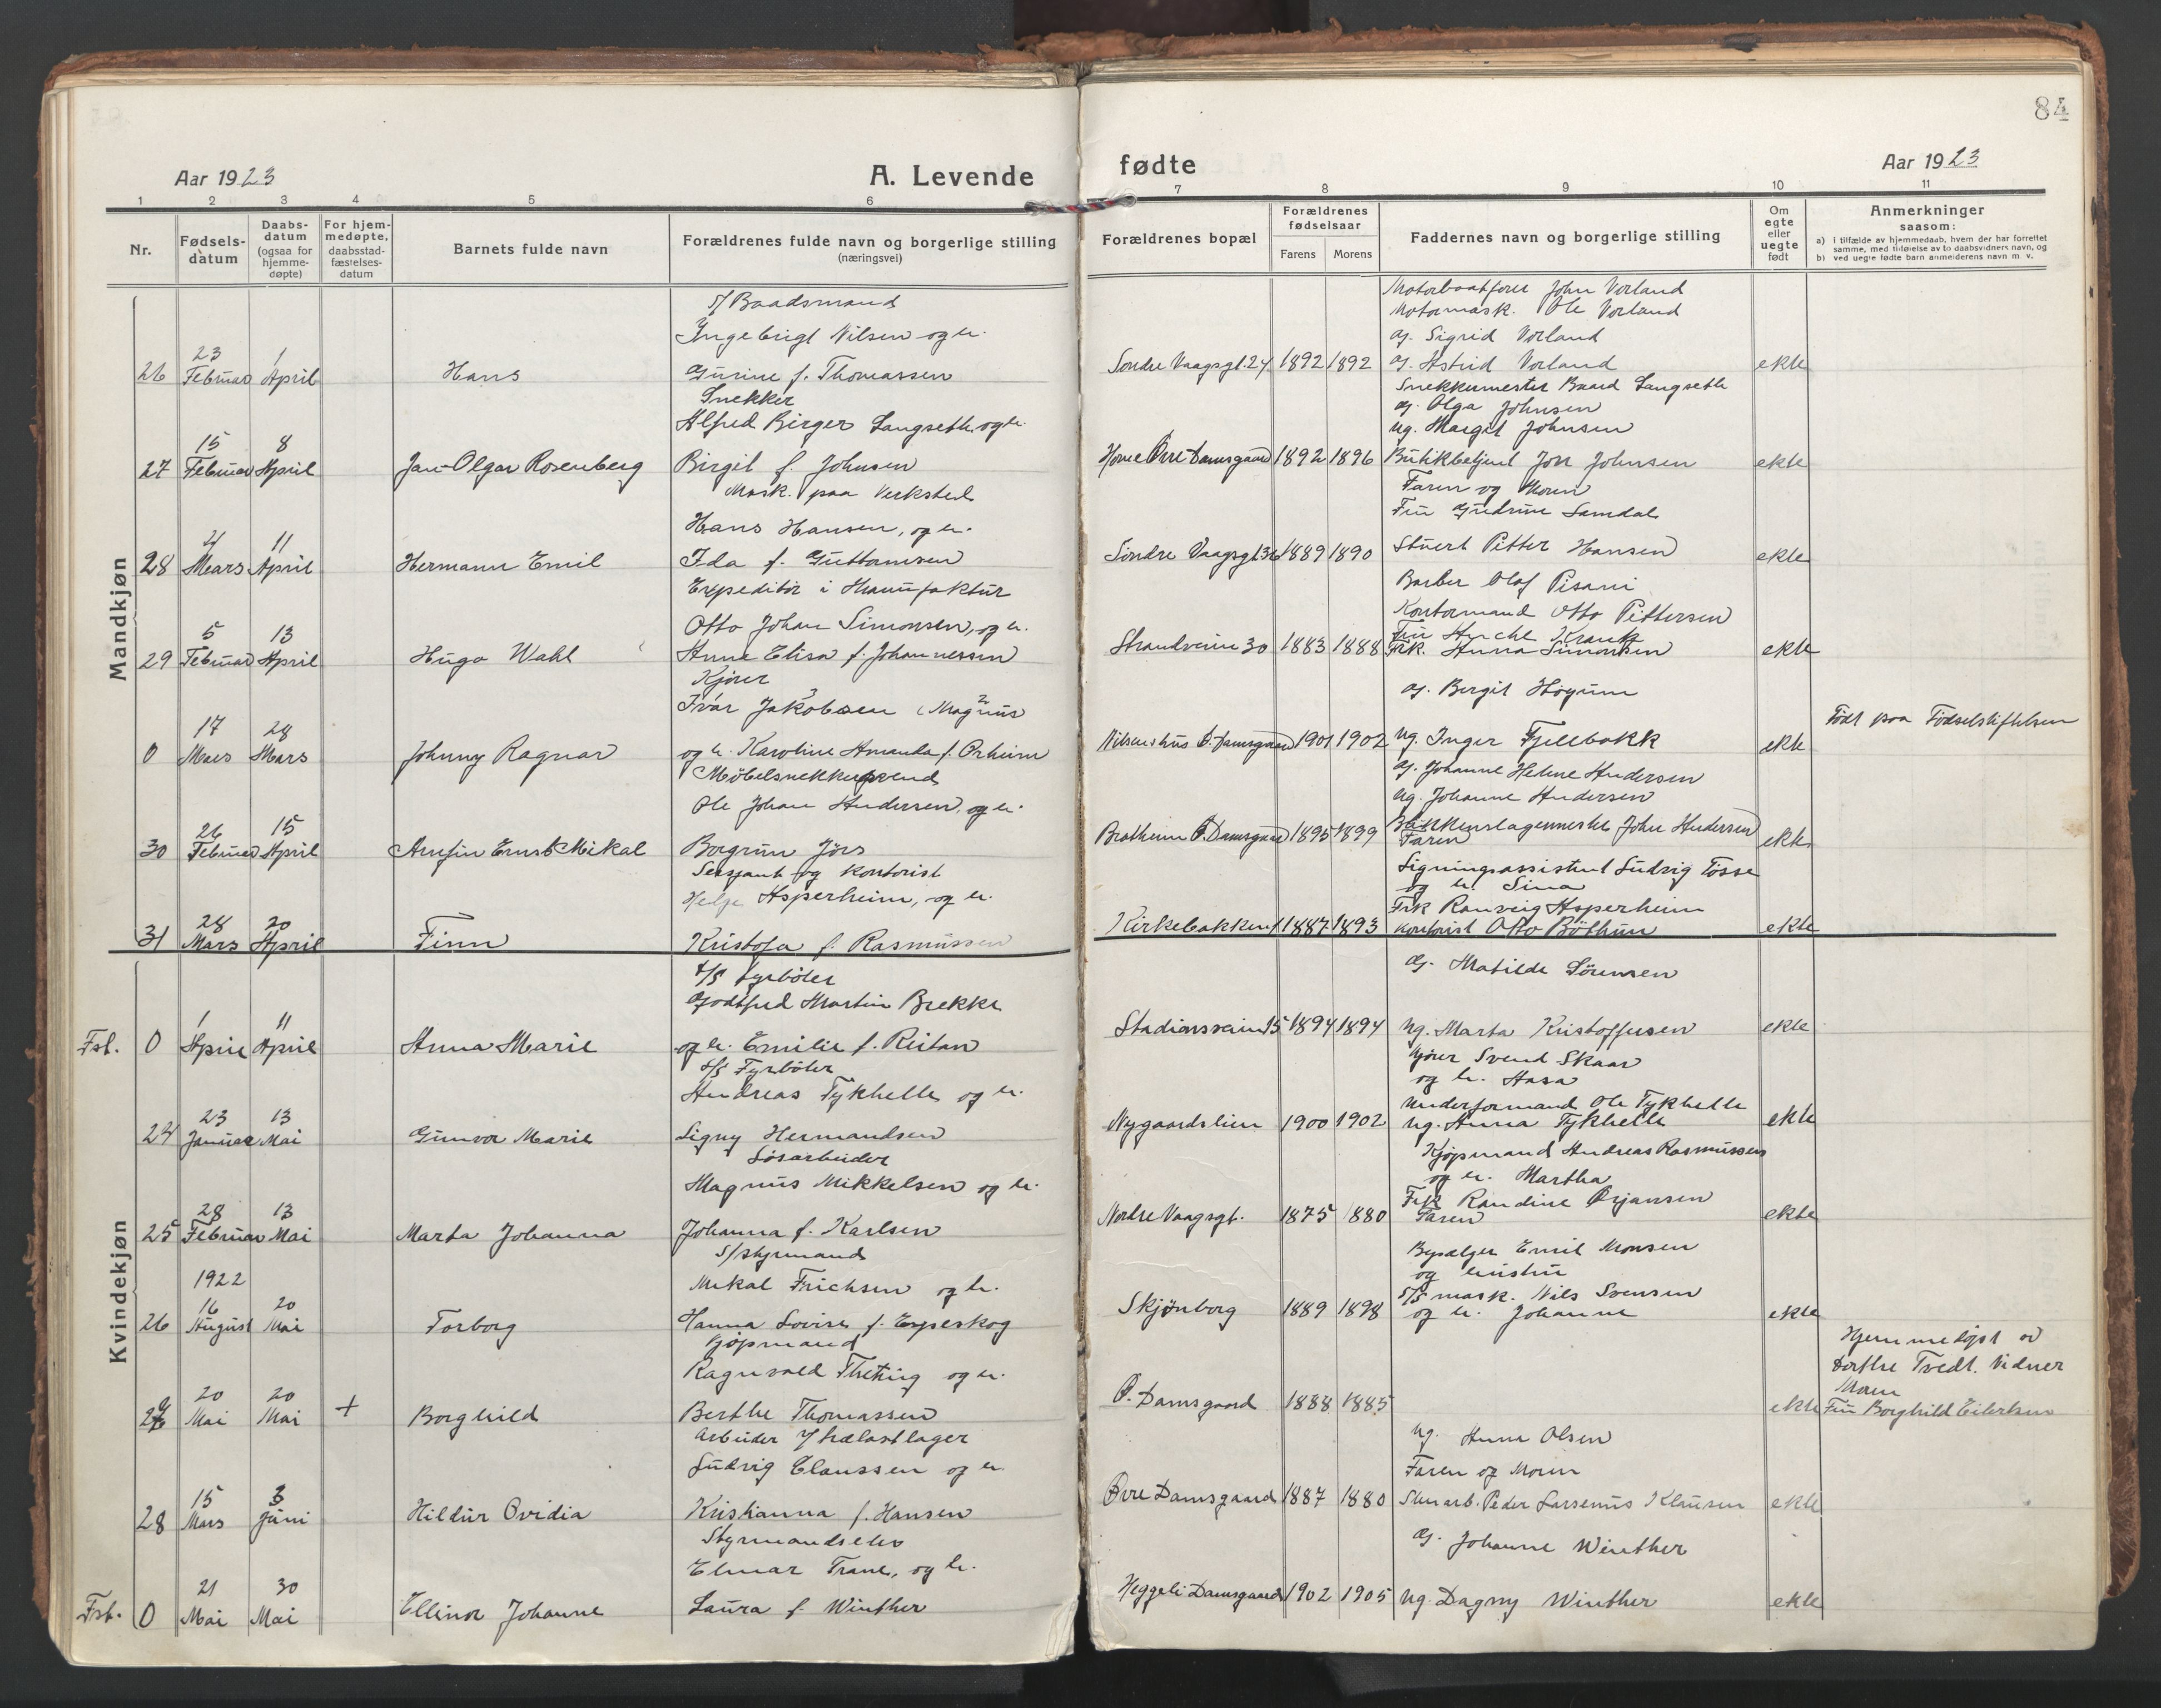 84
Aar 1923
A. Levende
fødte
Aar 1923
1 2 3 4 5 6 7 8 9 10 11
Nr.
Fødsels-
datum
Daabs-
datum
(ogsaa for
hjemme-
døpte)
For hjem-
medøpte,
daabsstad-
fæstelses-
datum
Barnets fulde navn
Forældrenes fulde navn og borgerlige stilling
(næringsvei)
Forældrenes bopæl
Forældrenes
fødselsaar
Farens Morens
Faddernes navn og borgerlige stilling
Om
egte
eller
uegte
født
Anmerkninger
saasom:
a) i tilfælde av hjemmedaab, hvem der har forrettet
samme, med tilføielse av to daabsvidners navn, og
b) ved uegte fødte barn anmelderens navn m. v.
Mandkjøn
s/ Baadsmand
Ingebrigt Nilsen og h.
26 23 Februar 1 April Hans
Gurine f. Thomassen
Søndre Vaagsgt. 24 1892 1892
Motorbaatfører John Vorland
Motormask. Ole Vorland
Gj. Sigrid Vorland
Gj. Astrid Vorland
ekte
Snekker
Alfred Birger Langseth og h.
27 15 Februar 8 April Jan Olgar Rosenberg
Birgit f. Johnsen
Øvre Damsgaard 1892 1896
Snekkermester Baard Langseth
Gj. Olga Johnsen
Ug. Margit Johnsen
Butikbetjent Jon Johnsen
ekte
Mask. paa Verksted
Hans Hansen, og h.
28 4 Mars 11 April Hermann Emil
Ida f. Guttormsen
Søndre Vaagsgt 36 1889 1890
Faren og Moren
Fru Gudrun Samdal
Stuert Petter Hansen
ekte
Expeditør i Manufaktur
Otto Johan Simonsen, og h.
29 5 Februar 13 April Hugo Wahl
Anne Elisa f. Johannessen
Strandveien 30 1883 1888
Barber Olaf Pisani
Kontormand Otto Pettersen
Frk. Anna Simonsen
ekte
Kjører
Ivar Jakobsen Magnus
0 17 Mars 28 Mars Johnny Ragnar
og h. Karoline Amanda f. Orheim
Nilsens hus Ø. Damsgaard 1901 1902
Gj. Bergit Høgum
Ug. Inger Fjellbakk
ekte
Født paa Fødselstiftelsen
Møbelsnekkersvend
Ole Johan Andersen, og h.
30 26 Februar 15 April Arnfin Ernst Mikal
Borgrun Jørs
Bratheim Ø. Damsgaard 1895 1899
Gj. Johanne Helene Andersen
Ug. Johanne Andersen
Blikkenslagermester John Andersen
Faren
ekte
Sersjant og kontorist
Helge Asperheim, og h.
31 28 Mars 20 April Finn
Kristofa f. Rasmussen
Kirkebakken 1 1887 1893
Ligningsassistent Ludvig Tøsse
og h. Sina
Frk Ranveig Asperheim
Kontorist Otto Bøthun
ekte
Kvindekjøn
s/s fyrbøter
Godtfred Martin Brekke
Fst. 0 1 April 11 April Anna Marie
og h. Emilie f. Reitan
Stadionsveien 15 1894 1894
Gj. Matilde Sørensen
Ug. Marta Kristoffersen
ekte
s/s Fyrbøter
Andreas Tykhelle og h.
24 23 Januar 13 Mai Gunvor Marie
Signy Hermandsen
Nygaardslien 1900 1902
Kjører Svend Skaar
og h. Aasa
Underformand Ole Tykhelle
Ug. Anna Tykhelle
ekte
Løsarbeider
Magnus Mikkelsen og h.
25 28 Februar 13 Mai Marta Johanna
Johanna f. Karlsen
Nordre Vaagsgt. 1875 1880
Kjøpmand Andreas Rasmussen
og h. Martha
Frk Randine Ørjansen
Faren
ekte
s/styrmand
Mikal Frichsen og h.
26 1922 16 August 20 Mai Torborg
Hanna Lovise f. Espeskog
Skjønborg 1889 1898
Bysælger Emil Monsen
og hustru
s/s mask. Nils Svensen
og h. Johanne
ekte
Kjøpmand
Ragnvald Theting og h.
27 20 Mai 20 Mai + Borghild
Berthe Thomassen
Ø. Damsgaard 1888 1885
ekte
Hjemmedøpt av
Dorthe Tvedt. Vidner
Moren
Fru Borghild Eilertsen
Arbeider / trælastlager
Ludvig Claussen og h.
28 15 Mars 3 Juni Hildur Ovidia
Kristianna f. Hansen
Øvre Damsgaard 1887 1880
Ug. Anna Olsen
Faren og Moren
Peder Larsenius Klausen
ekte
Styrmandselev
Elmar Trane, og h.
Fst. 0 21 Mai 30 Mai Ellinor Johanne
Laura f. Winther
Heggeli Damsgaard 1902 1905
Gj. Johanne Winther
Ug. Dagny Winther
ekte